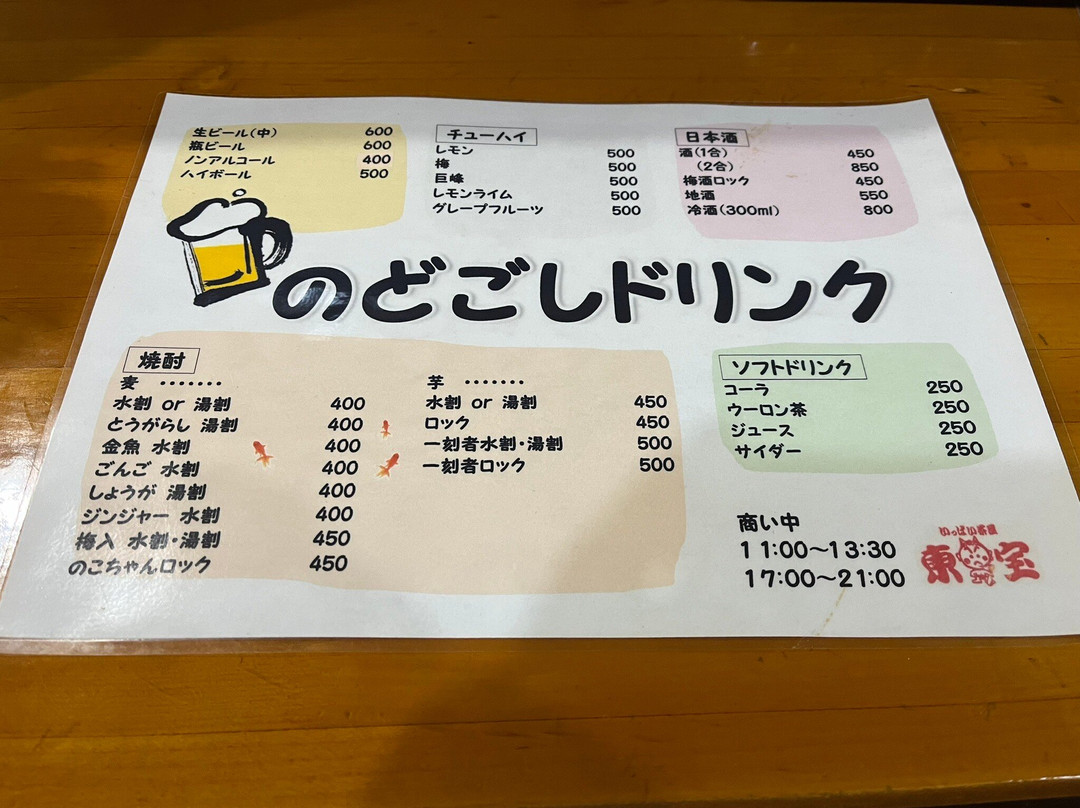 生ビール(中) 600
瓶ビール 600
ノンアルコール 400
ハイボール 500
チューハイ
レモン 500
梅 500
巨峰 500
レモンライム 500
グレープフルーツ 500
日本酒
酒(1合) 450
(2合) 850
梅酒ロック 450
地酒 550
冷酒(300ml) 800
のどごしドリンク
焼酎
麦 ・・・・・・・
水割 or 湯割 400
とうがらし 湯割 400
金魚 水割 400
ごんご 水割 400
しょうが 湯割 400
ジンジャー 水割 400
梅入 水割・湯割 450
のこちゃんロック 450
芋 ・・・・・・・
水割 or 湯割 450
ロック 450
一刻者水割・湯割 500
一刻者ロック 500
ソフトドリンク
コーラ 250
ウーロン茶 250
ジュース 250
サイダー 250
商い中
11:00～13:30
17:00～21:00
いっぱい茶屋
東宝